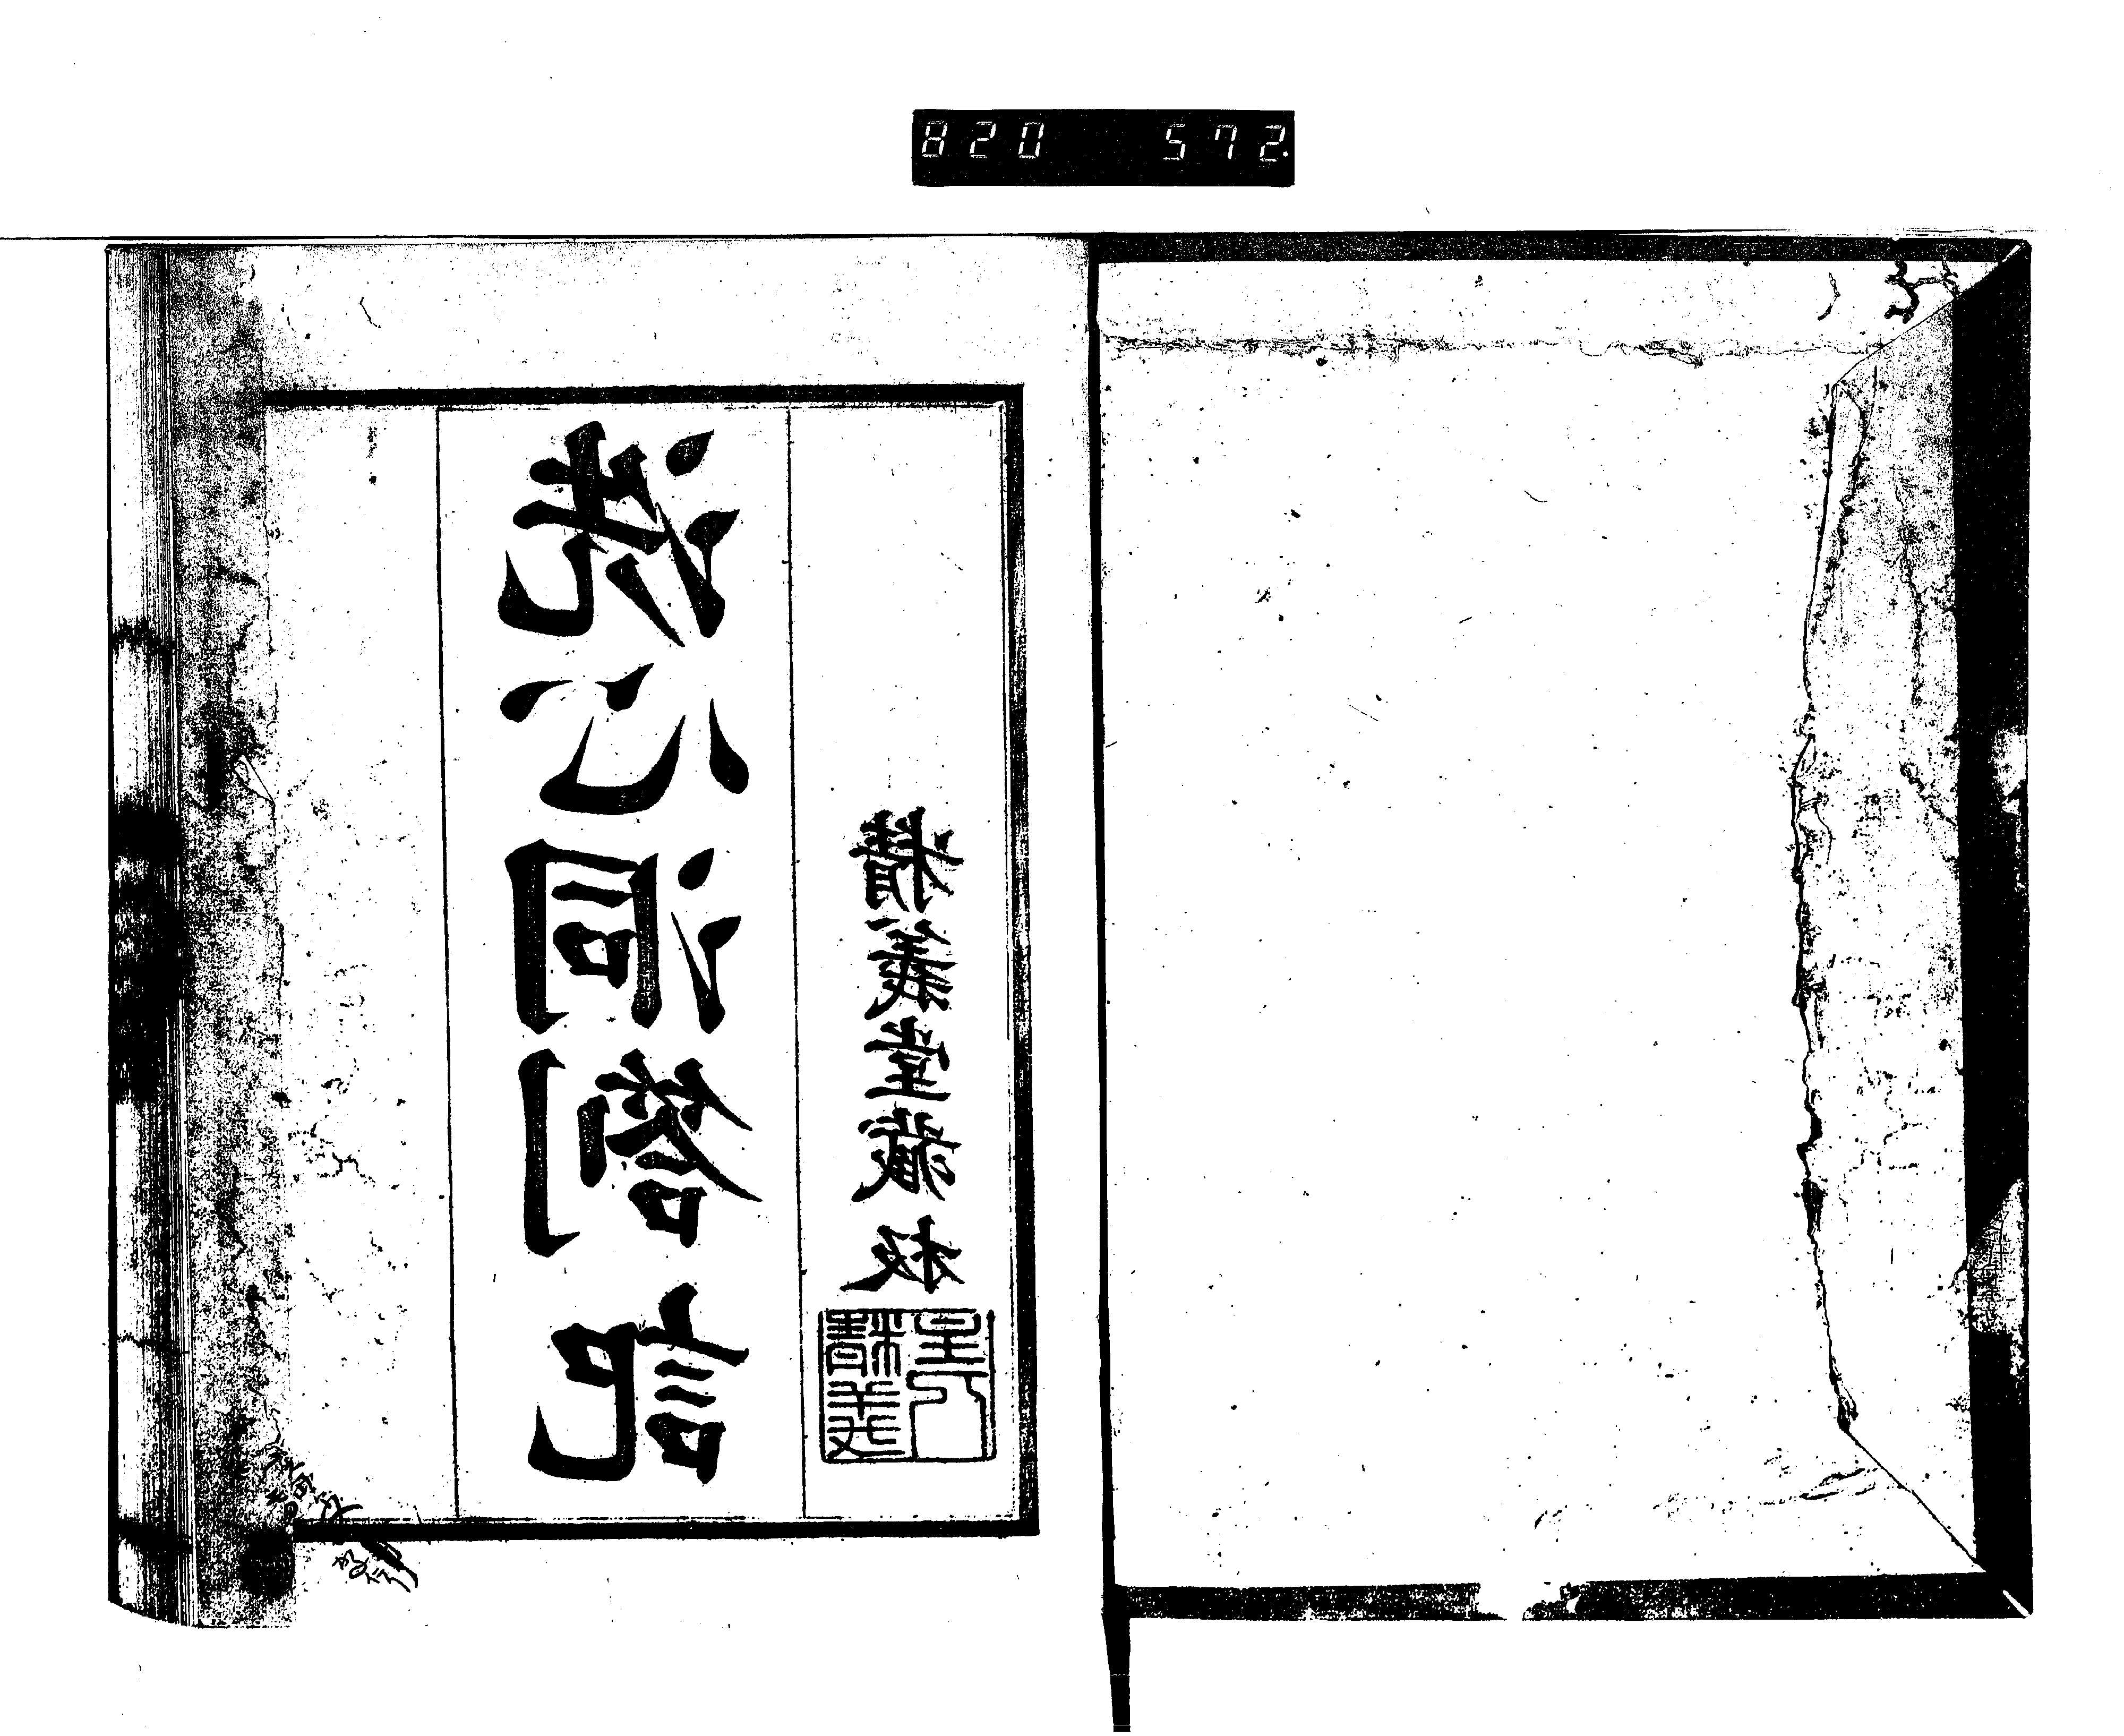 820 572
洗心洞劄記
精義堂藏板